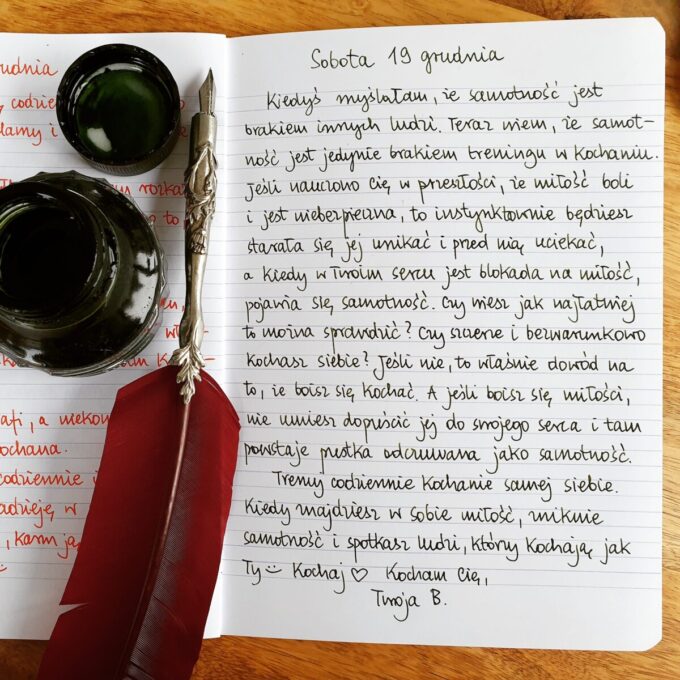 rudnia
codzie
lamy i
rozka
to
wł
Kom
afi, a niekow
ochana.
codziennie i
adzieję, w
, karm ją
Sobota 19 grudnia
Kiedyś myślałam, że samotność jest
brakiem innych ludzi. Teraz wiem, że samot-
ność jest jedynie brakiem treningu w kochaniu.
Jeśli nauczono Cię w przeszłości, że miłość boli
i jest niebezpieczna, to instynktownie będziesz
starała się jej unikać i przed nią uciekać,
a kiedy w Twoim sercu jest blokada na miłość,
pojawia się samotność. Czy wiesz jak najłatwiej
to można sprawdzić? Czy szczerze i bezwarunkowo
kochasz siebie? Jeśli nie, to właśnie dowód na
to, że boisz się kochać. A jeśli boisz się miłości,
nie umiesz dopuścić jej do swojego serca i tam
powstaje pustka odczuwana jako samotność.
Trenuj codziennie kochanie samej siebie.
Kiedy znajdziesz w sobie miłość, zniknie
samotność i spotkasz ludzi, który kochają jak
Ty☺ Kochaj ♡ Kocham Cię,
Twoja B.